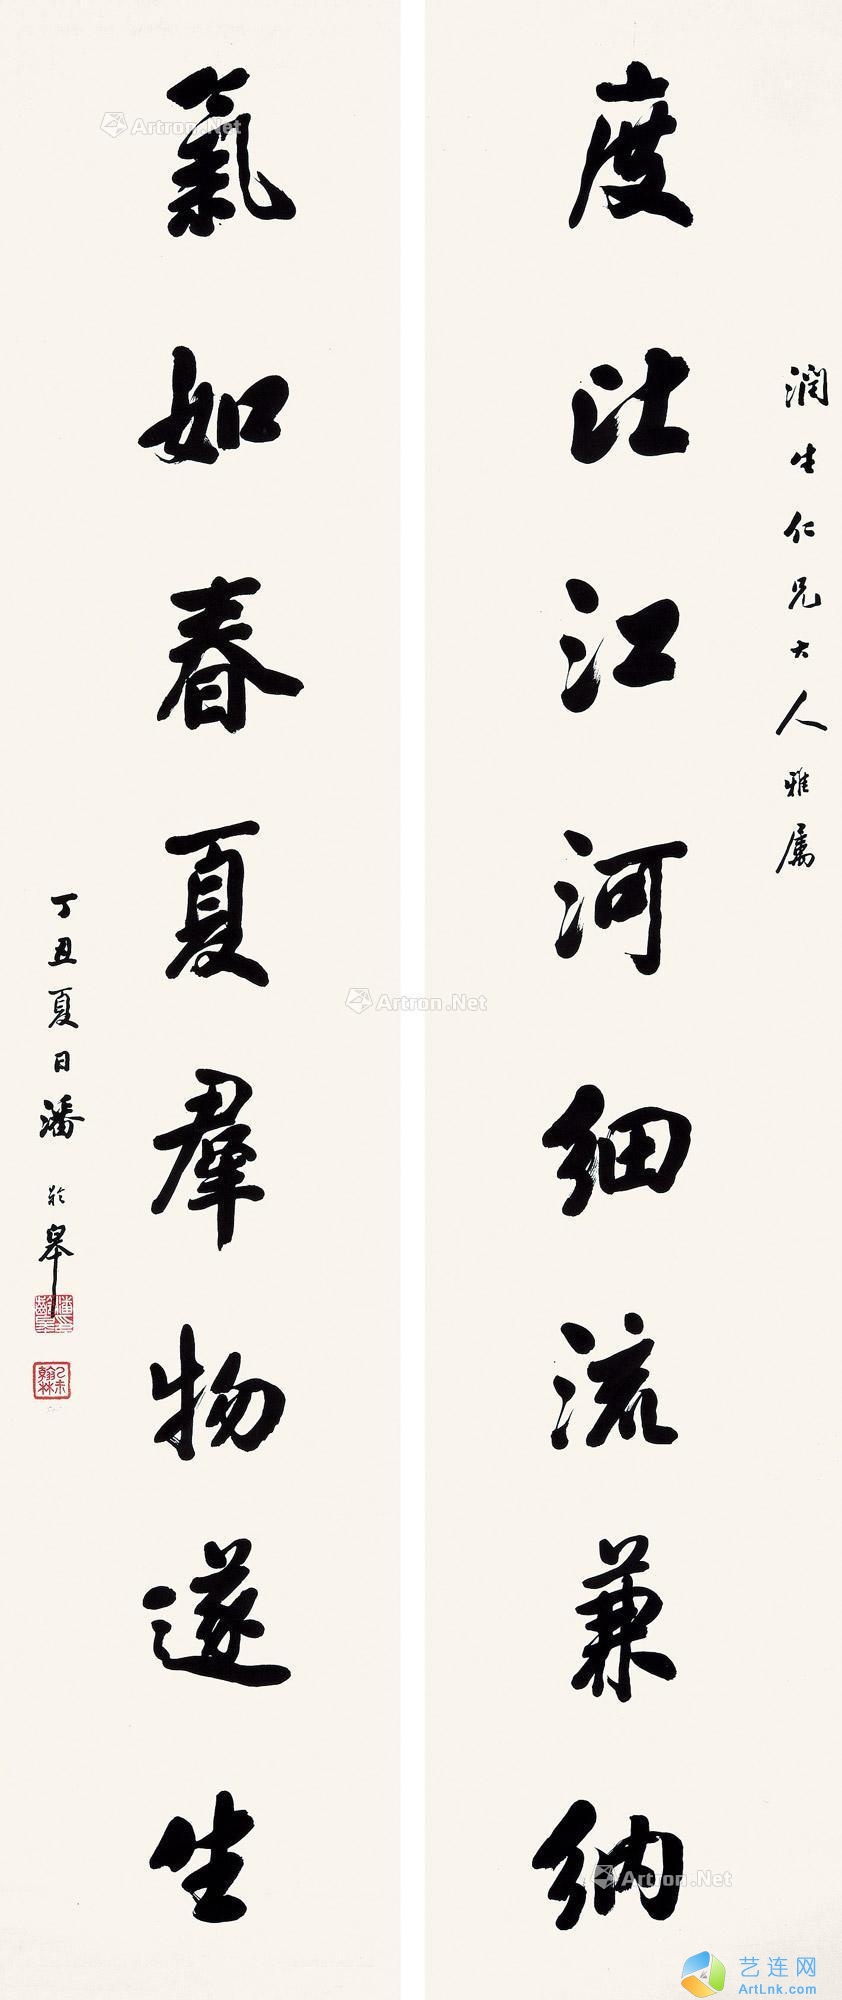 润生仁兄大人雅属
度比江河細流兼納
氣如春夏羣物遂生
丁丑夏日潘齡皋
乙未翰林
Artron.Net
Artron.Net
Artron.Net
艺连网
ArtLnk.com